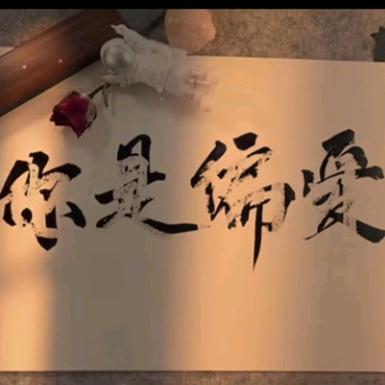 你是偏爱